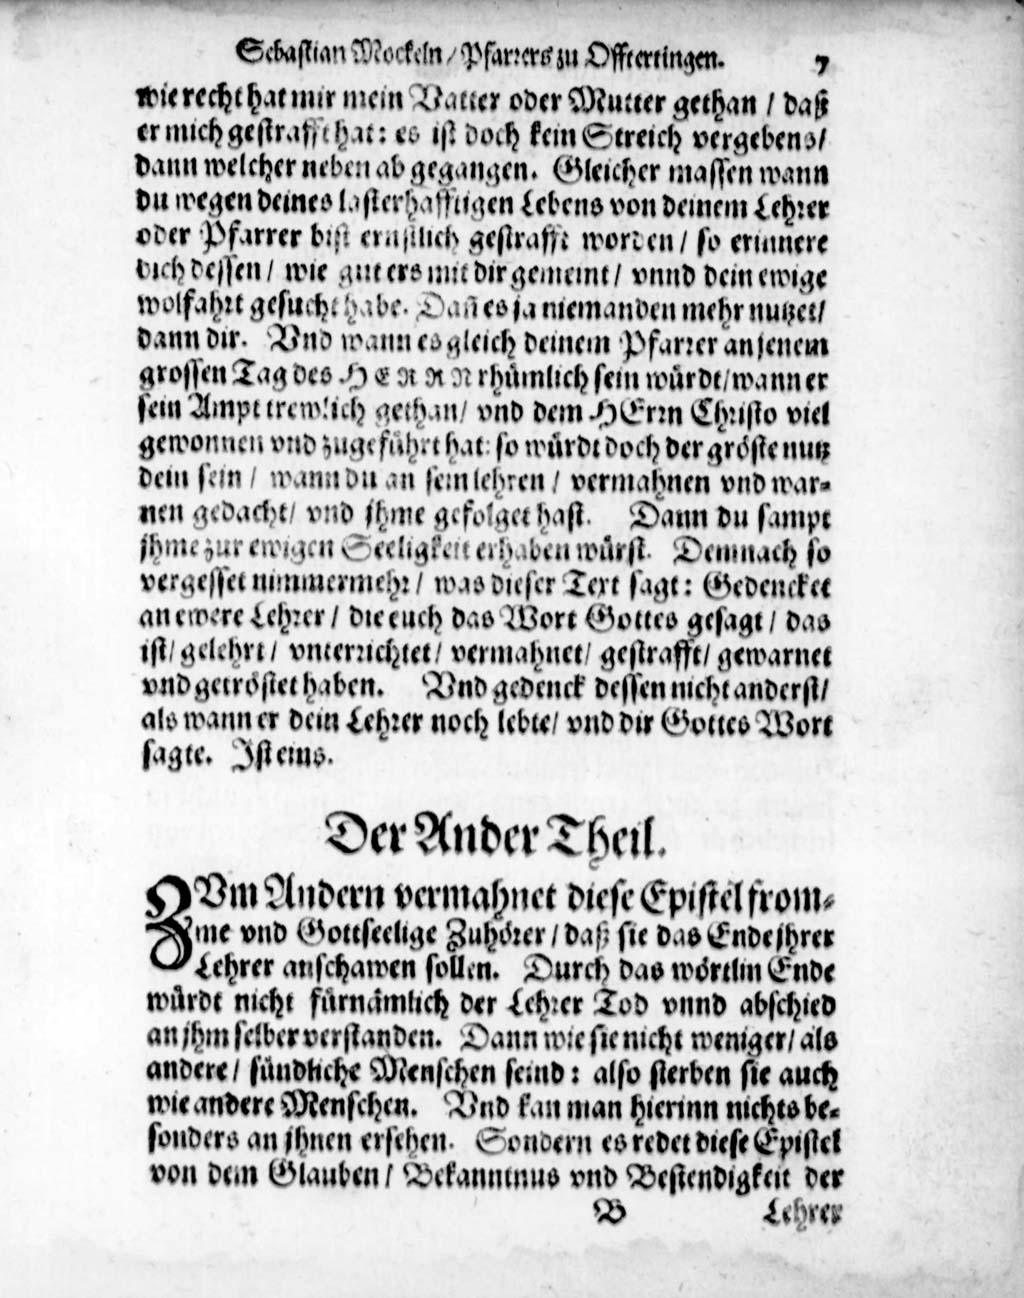 Sebastian Mockeln / Pfarrers zu Offtertingen. 7
wie recht hat mir mein Vatter oder Mutter gethan / daß
er mich gestrafft hat: es ist doch kein Streich vergebens /
dann welcher neben ab gegangen. Gleicher massen wann
du wegen deines lasterhafftigen Lebens von deinem Lehrer
oder Pfarrer bist ernstlich gestrafft worden / so erinnere
dich dessen / wie gut ers mit dir gemeint / vnnd dein ewige
wolfahrt gesucht habe. Dañ es ja niemanden mehr nutzet /
dann dir. Vnd wann es gleich deinem Pfarrer an jenem
grossen Tag des HERRN rhümlich sein würdt / wann er
sein Ampt trewlich gethan / vnd dem HErrn Christo viel
gewonnen vnd zugeführt hat: so würdt doch der gröste nutz
dein sein / wann du an sein lehren / vermahnen vnd war-
nen gedacht / vnd jhme gefolget hast. Dann du sampt
jhme zur ewigen Seeligkeit erhaben würst. Demnach so
vergesset nimmermehr / was dieser Text sagt: Gedencket
an ewere Lehrer / die euch das Wort Gottes gesagt / das
ist / gelehrt / vnterrichtet / vermahnet / gestrafft / gewarnet
vnd getröstet haben. Vnd gedenck dessen nicht anderst /
als wann er dein Lehrer noch lebte / vnd dir Gottes Wort
sagte. Ist eins.
Der Ander Theil.
ZVm Andern vermahnet diese Epistel from-
me vnd Gottseelige Zuhörer / daß sie das Ende jhrer
Lehrer anschawen sollen. Durch das wörtlin Ende
würdt nicht fürnämlich der Lehrer Tod vnnd abschied
an jhm selber verstanden. Dann wie sie nicht weniger / als
andere / sündliche Menschen seind: also sterben sie auch
wie andere Menschen. Vnd kan man hierinn nichts be-
sonders an jhnen ersehen. Sondern es redet diese Epistel
von dem Glauben / Bekanntnus vnd Bestendigkeit der
B Lehrer